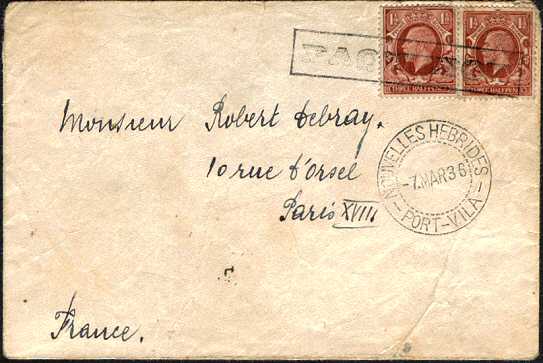 1½ 1½
THREE HALFPENCE THREE HALFPENCE
Monsieur Robert Debray.
10 rue d'Orsel
Paris XVIII
France.
NOUVELLES HEBRIDES
-7.MAR36
- PORT-VILA -